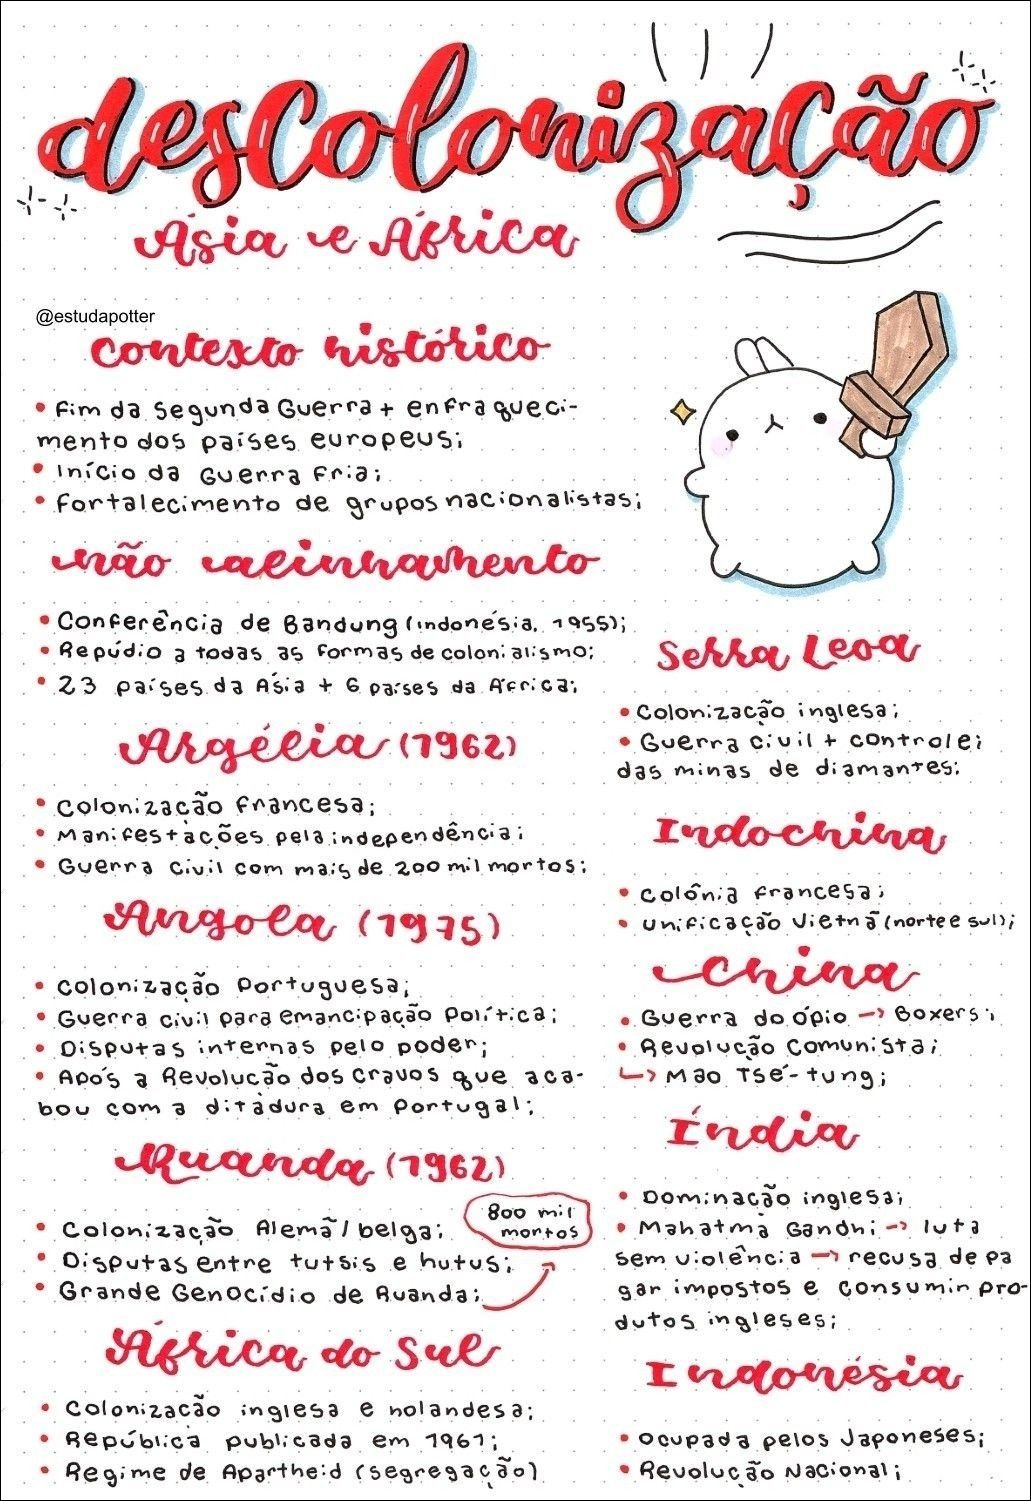 descolonização
Ásia e África
@estudapotter
contexto histórico
• Fim da Segunda Guerra + enfraqueci-
mento dos países europeus;
• Início da Guerra Fria;
• Fortalecimento de grupos nacionalistas;
não alinhamento
• Conferência de Bandung (Indonésia, 1955);
• Repúdio a todas as formas de colonialismo;
• 23 países da Ásia + 6 países da África;
Argélia (1962)
• Colonização Francesa;
• Manifestações pela independência;
• Guerra civil com mais de 200 mil mortos;
Angola (1975)
• Colonização Portuguesa;
• Guerra civil para emancipação política;
• Disputas internas pelo poder;
• Após a Revolução dos Cravos que aca-
bou com a ditadura em Portugal;
Ruanda (1962)
• Colonização Alemã/belga;
• Disputas entre tutsis e hutus;
• Grande Genocídio de Ruanda;
800 mil
mortos
África do Sul
• Colonização inglesa e holandesa;
• República publicada em 1961;
• Regime de Apartheid (segregação)
Serra Leoa
• Colonização inglesa;
• Guerra civil + controle;
das minas de diamantes;
Indochina
• Colônia Francesa;
• Unificação Vietnã (norte e sul);
China
• Guerra do ópio → Boxers;
• Revolução Comunista;
↳ Mao Tsé-tung;
Índia
• Dominação inglesa;
• Mahatma Gandhi → luta
sem violência → recusa de pa
gar impostos e consumir pro-
dutos ingleses;
Indonésia
• Ocupada pelos Japoneses;
• Revolução Nacional;